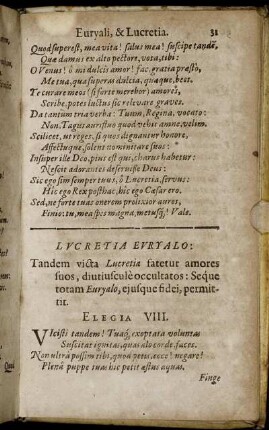 Euryali, & Lucretia. 31
Quod superest, mea vita! salus mea! suscipe tandē,
Quæ damus ex alto pectore, vota, tibi:
O Venus! ô mi dulcis amor! fac, gratia præsto,
Me tua, qua superas dulcia, quæque, beet.
Te curare meos (si forte merebor) amores,
Scribe. potes luctus sic relevare graves.
Da tantum tria verba: Tuum, Regina, vocato:
Non, Tagus aurifluo quod vehit amne, velim.
Scilicet, ut reges, si quos dignantur honore,
Affectuque, solent nominitare suos:
Insuper ille Deo, pius est qui, charus habetur:
Nescit adorantes deseruisse Deus:
Sic ego sim semper tuus, ô Lucretia, servus:
Hic ego Rex posthac, hic ego Cæsar ero.
Sed, ne forte tuas onerem prolixior aures,
Finio: tu, mea spes magna, metusq́;! Vale.
LVCRETIA EVRYALO:
Tandem victa Lucretia fatetur amores
suos, diutiusculè occultatos: Seque
totam Euryalo, ejusque fidei, permit-
tit.
ELEGIA VIII.
VIcisti tandem! Tuaq́, exoptata voluntas
Suscitat ignitas, quas alo corde, faces.
Non ultrà possim tibi, quod petis, ecce! negare!
Plenâ puppe tuas hic petit æstus aquas.
Finge